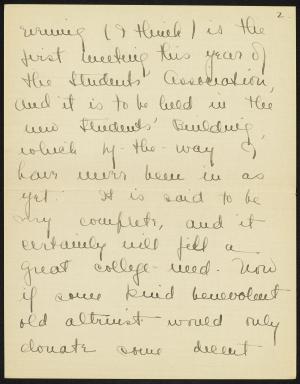 2
evening (I think) is the
first meeting this year of
the Students' Association,
and it is to be held in the
new Students' Building,
which by-the-way I
have never been in as
yet. It is said to be
very complete, and it
certainly will fill a
great college-need. Now
if some kind benevolent
old altruist would only
donate some decent